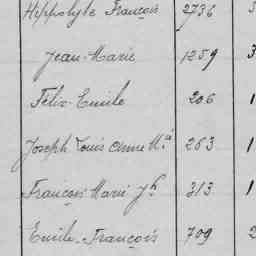 Hippolyte François 2736
Jean-Marie 1259 3
Félix Emile 206 1
Joseph Louis Anne Mª 263 1
François Marie Jh 313 1
Emile-François 709 2